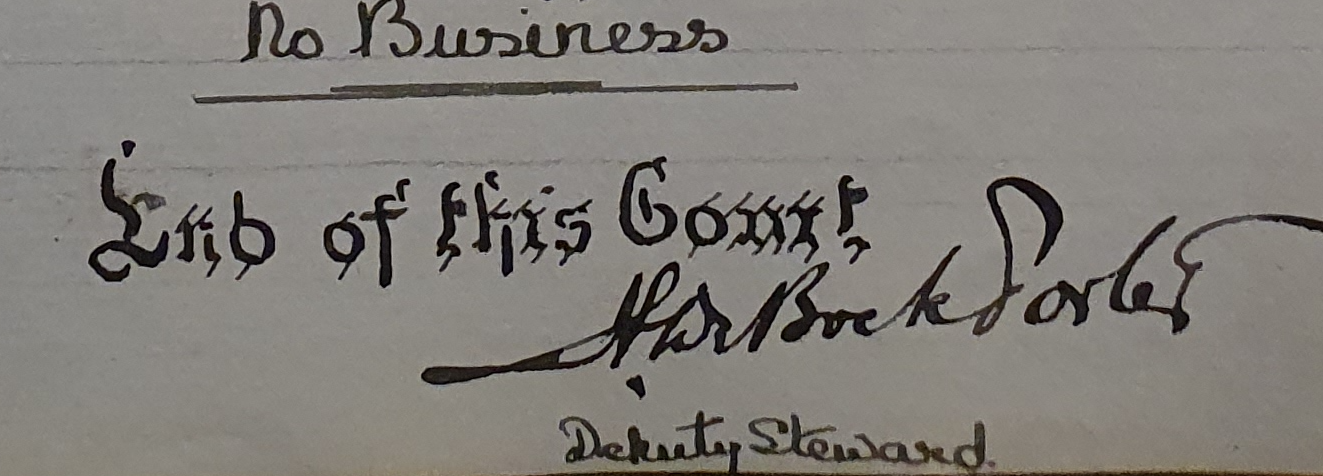 No Business
End of this Court
Deputy Steward.